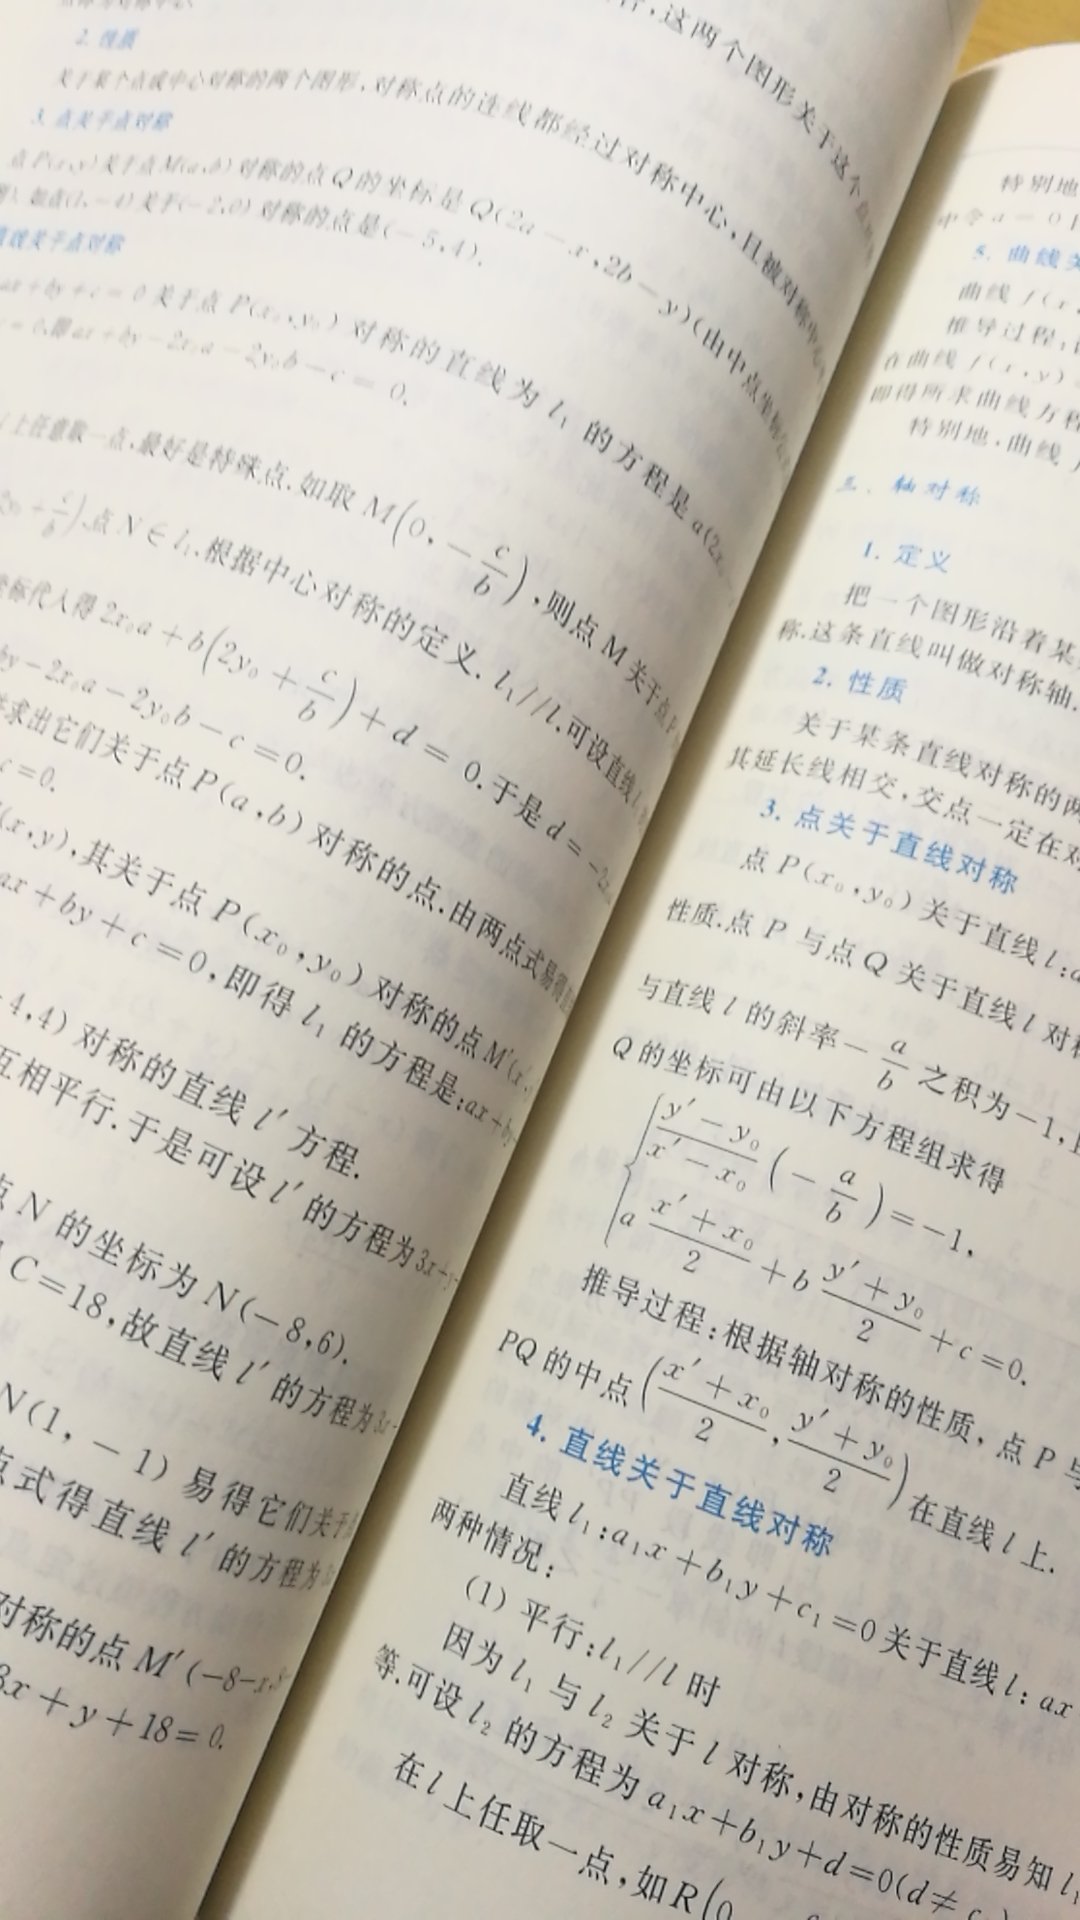 ,这两个图形关于这个
2. 性质
关于某个点成中心对称的两个图形,对称点的连线都经过对称中心,且被对称中心
3. 点关于点对称
点P(x,y)关于点M(a,b)对称的点Q的坐标是Q(2a-x,2b-y)(由中点坐标
如点(1,-4)关于(-2,0)对称的点是(-5,4).
直线关于点对称
ax+by+c=0关于点P(x₀,y₀)对称的直线为l₁的方程是a(2x
=0,即ax+by-2x₀a-2y₀b-c=0.
上任意取一点,最好是特殊点.如取M(0,-c/b),则点M关于点P
点N∈l₁.根据中心对称的定义.l₁//l.可设直线l
坐标代入得2x₀a+b(2y₀+c/b)+d=0.于是d=-2x
by-2x₀a-2y₀b-c=0.
求出它们关于点P(a,b)对称的点.由两点式易得
c=0.
(x,y),其关于点P(x₀,y₀)对称的点M′(x′,
ax+by+c=0,即得l₁的方程是:ax+by
4,4)对称的直线l′方程.
互相平行.于是可设l′的方程为3x+y
点N的坐标为N(-8,6).
C=18,故直线l′的方程为3x
N(1,-1)易得它们关于
点式得直线l′的方程为3x
对称的点M′(-8-x,8
3x+y+18=0.
特别地
中令a=0
5. 曲线关
曲线f(x,
推导过程:
在曲线f(x,y)=
即得所求曲线方程
特别地.曲线
三、轴对称
1. 定义
把一个图形沿着某
称.这条直线叫做对称轴.
2. 性质
关于某条直线对称的两
其延长线相交,交点一定在对
3. 点关于直线对称
点P(x₀,y₀)关于直线l:a
性质.点P与点Q关于直线l对称
与直线l的斜率-a/b之积为-1,且
Q的坐标可由以下方程组求得
{(y′-y₀)/(x′-x₀)(-a/b)=-1,
a(x′+x₀)/2+b(y′+y₀)/2+c=0.
推导过程:根据轴对称的性质,点P与
PQ的中点((x′+x₀)/2,(y′+y₀)/2)在直线l上.
4. 直线关于直线对称
直线l₁:a₁x+b₁y+c₁=0关于直线l:ax
两种情况:
(1)平行:l₁//l时
因为l₁与l₂关于l对称,由对称的性质易知l₁
等.可设l₂的方程为a₁x+b₁y+d=0(d≠c
在l上任取一点,如R(0